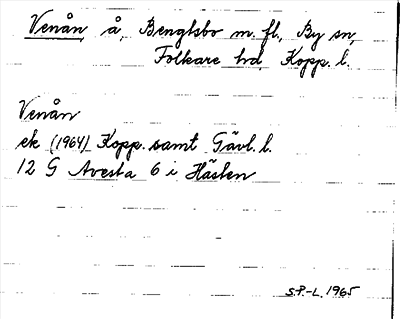 Venån, å, Bengtsbo m. fl., By sn,
Folkare hd, Kopp. l.
Venån
ek (1964) Kopp. samt Gävl. l.
12 G Avesta 6 i Hästen
S.P.-L. 1965